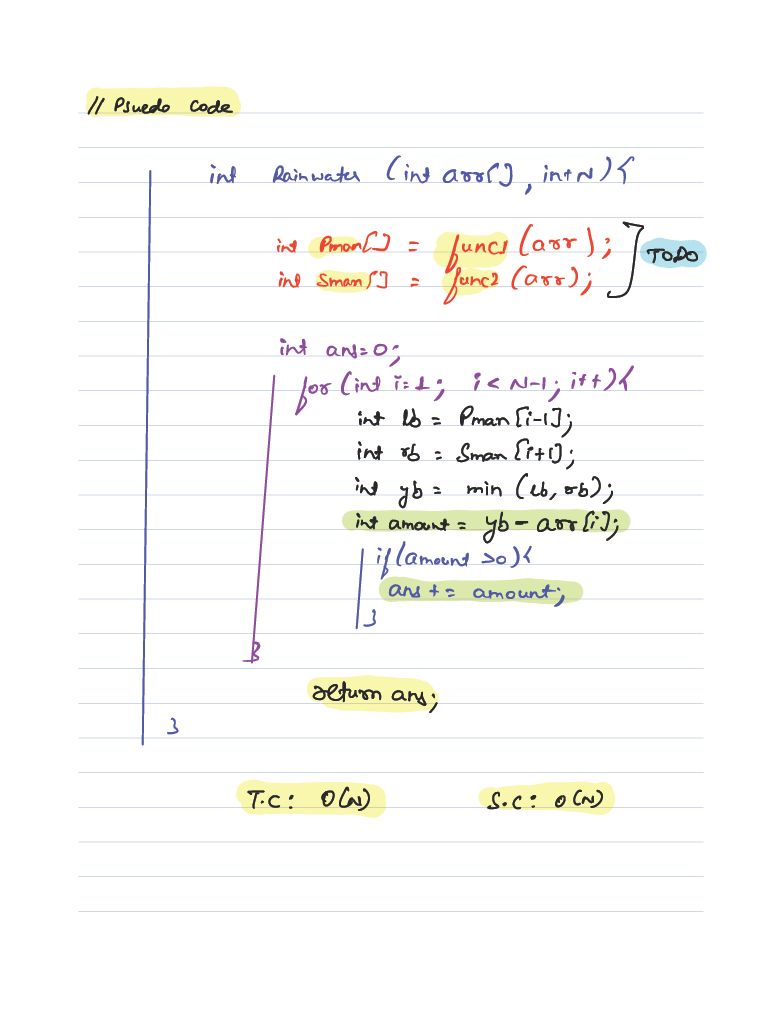 // Psuedo Code
int Rainwater (int arr[], int N){
int Pmax[] = func1 (arr);
int Smax[] = func2 (arr);
TODO
int ans=0;
for (int i=1; i< N-1; i++){
int lb = Pmax [i-1];
int rb = Smax [i+1];
int yb = min (lb, rb);
int amount = yb - arr[i];
if(amount >0){
ans += amount;
}
}
return ans;
}
T.C: O(N) S.C: O(N)